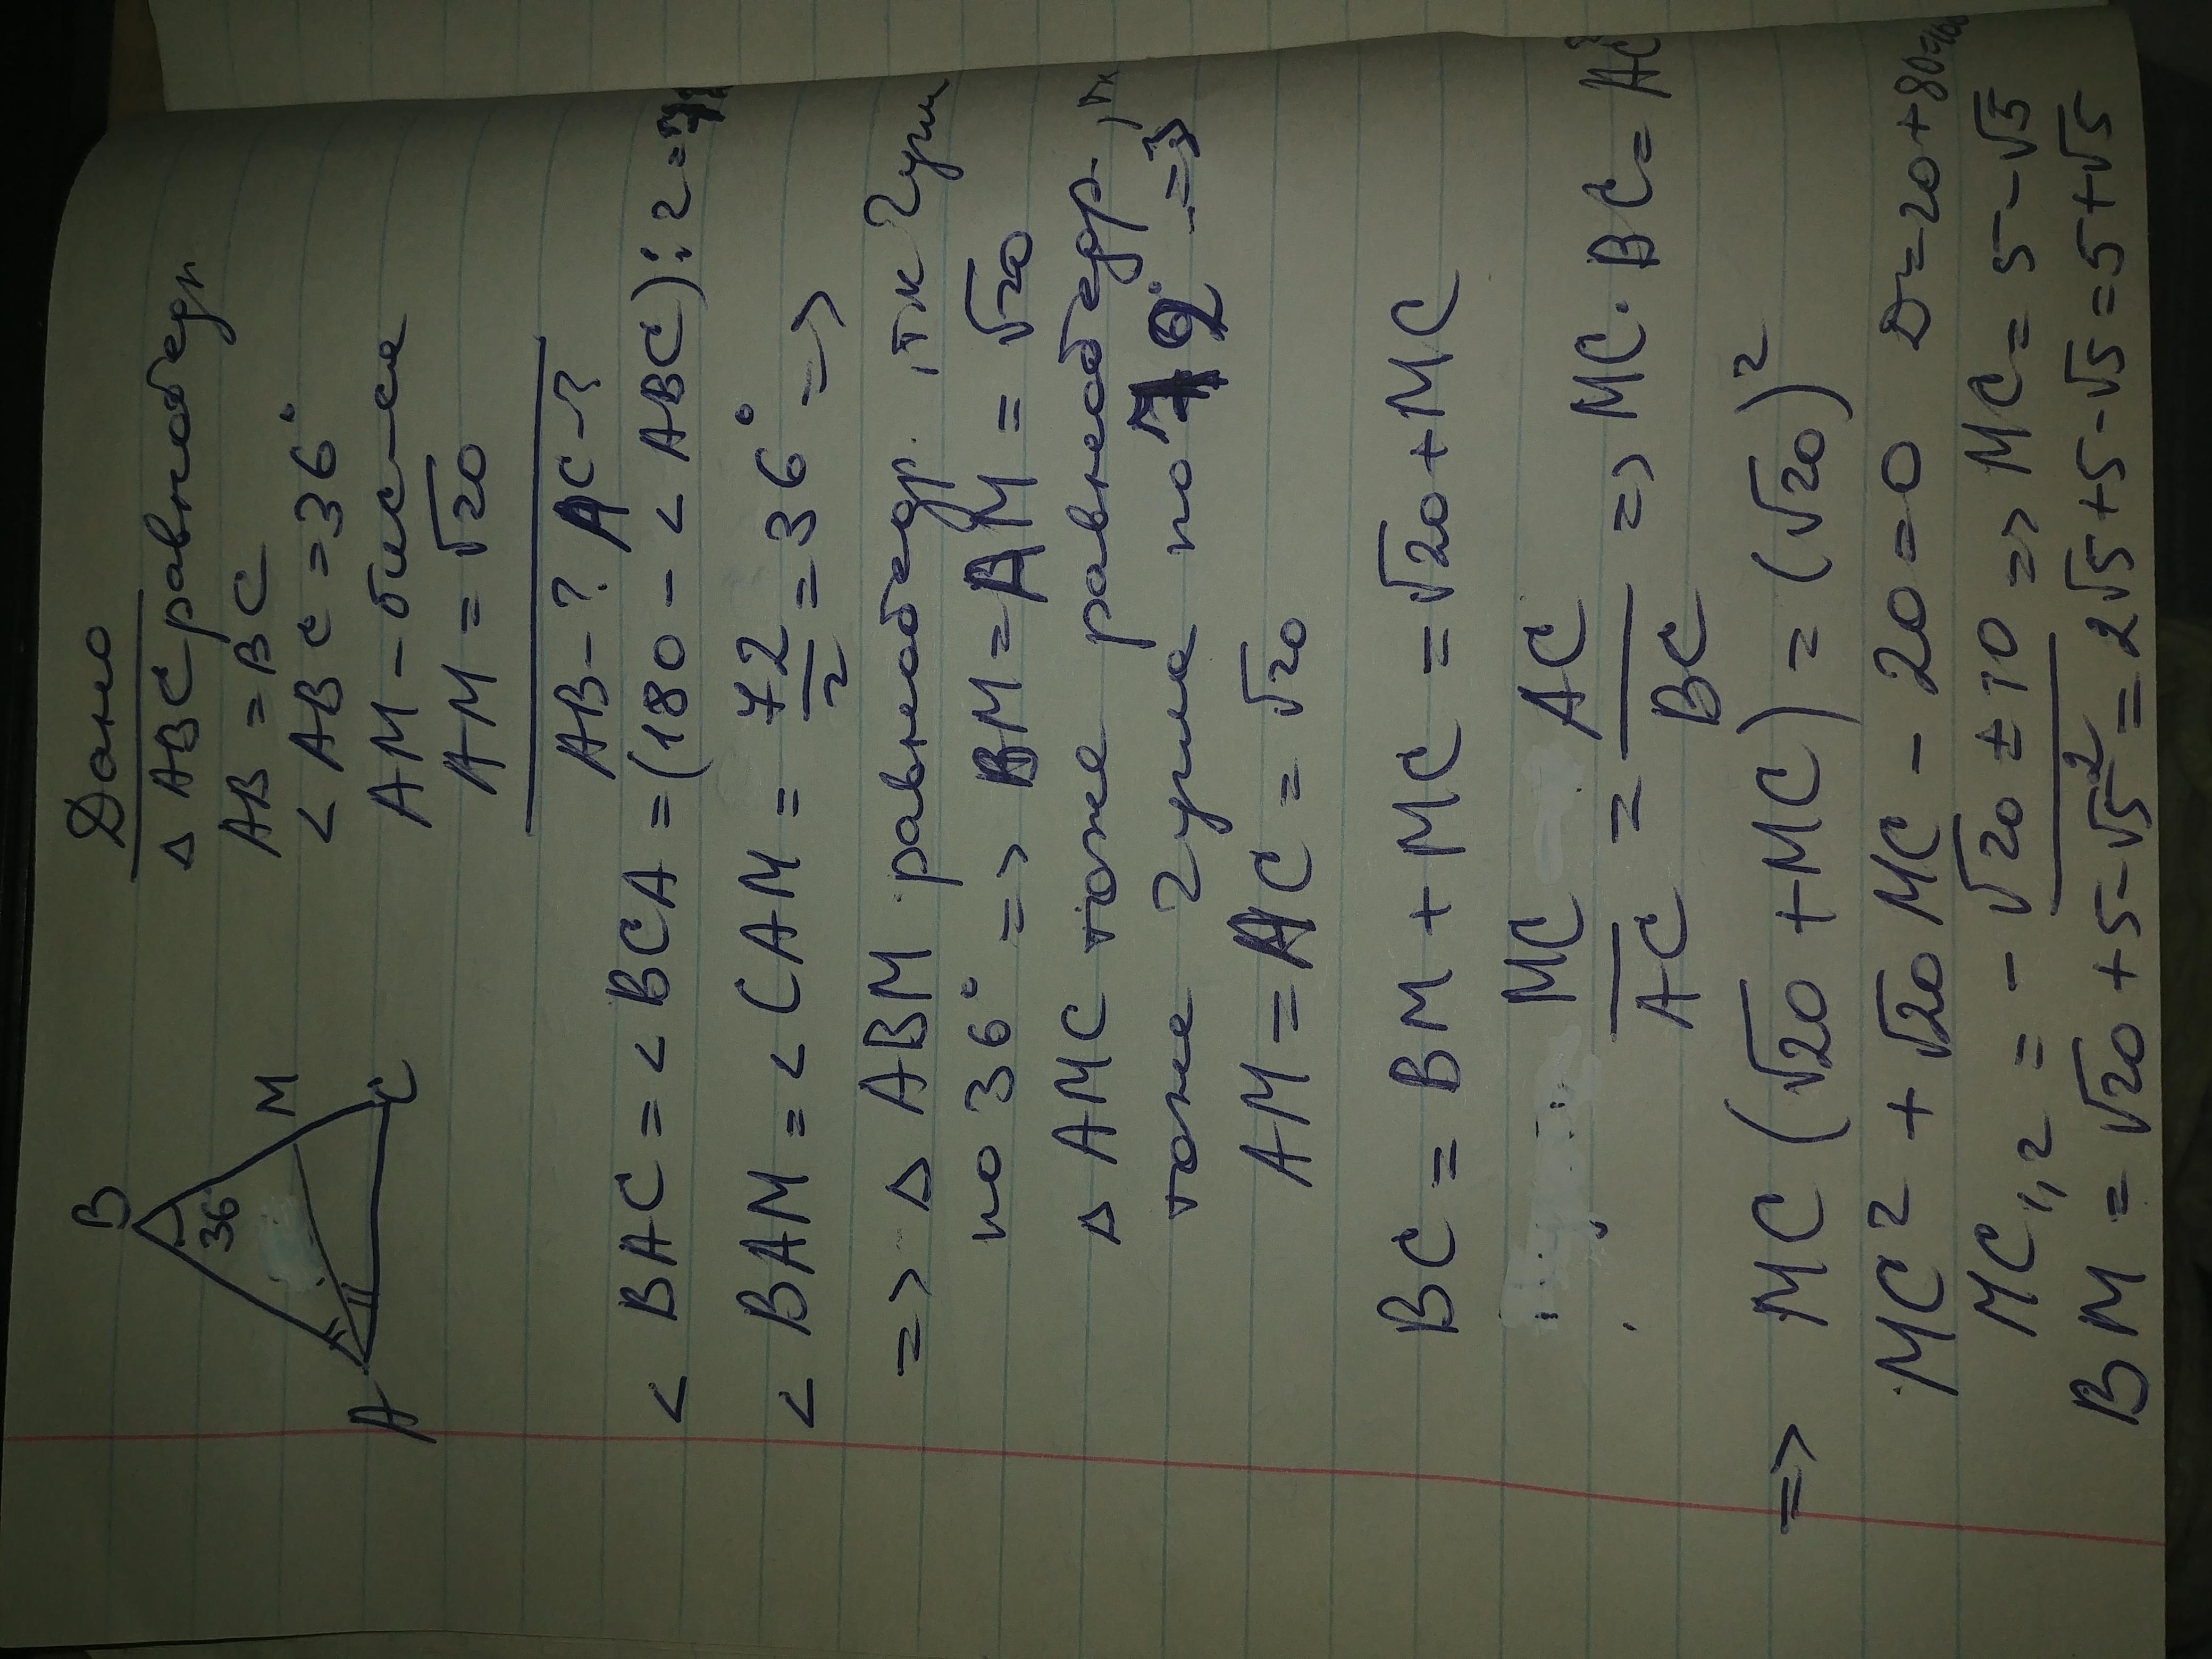 Дано
Δ ABC равнобедр
AB = BC
< ABC = 36°
AM – бис–са
AM = √20
AB - ? AC - ?
B
36°
M
A
C
< BAC = < BCA = (180 - < ABC) : 2 = 72
< BAM = < CAM = 72/2 = 36° =>
=> Δ ABM равнобедр. , тк 2 угла
по 36° => BM = AM = √20
Δ AMC тоже равнобедр. , тк
тоже 2 угла по 72° =>
AM = AC = √20
BC = BM + MC = √20 + MC
MC/AC = AC/BC => MC · BC = AC²
=> MC (√20 + MC) = (√20)²
MC² + √20 MC - 20 = 0 D = 20 + 80 = 100
MC₁,₂ = (- √20 ± 10)/2 => MC = 5 - √5
BM = √20 + 5 - √5 = 2√5 + 5 - √5 = 5 + √5